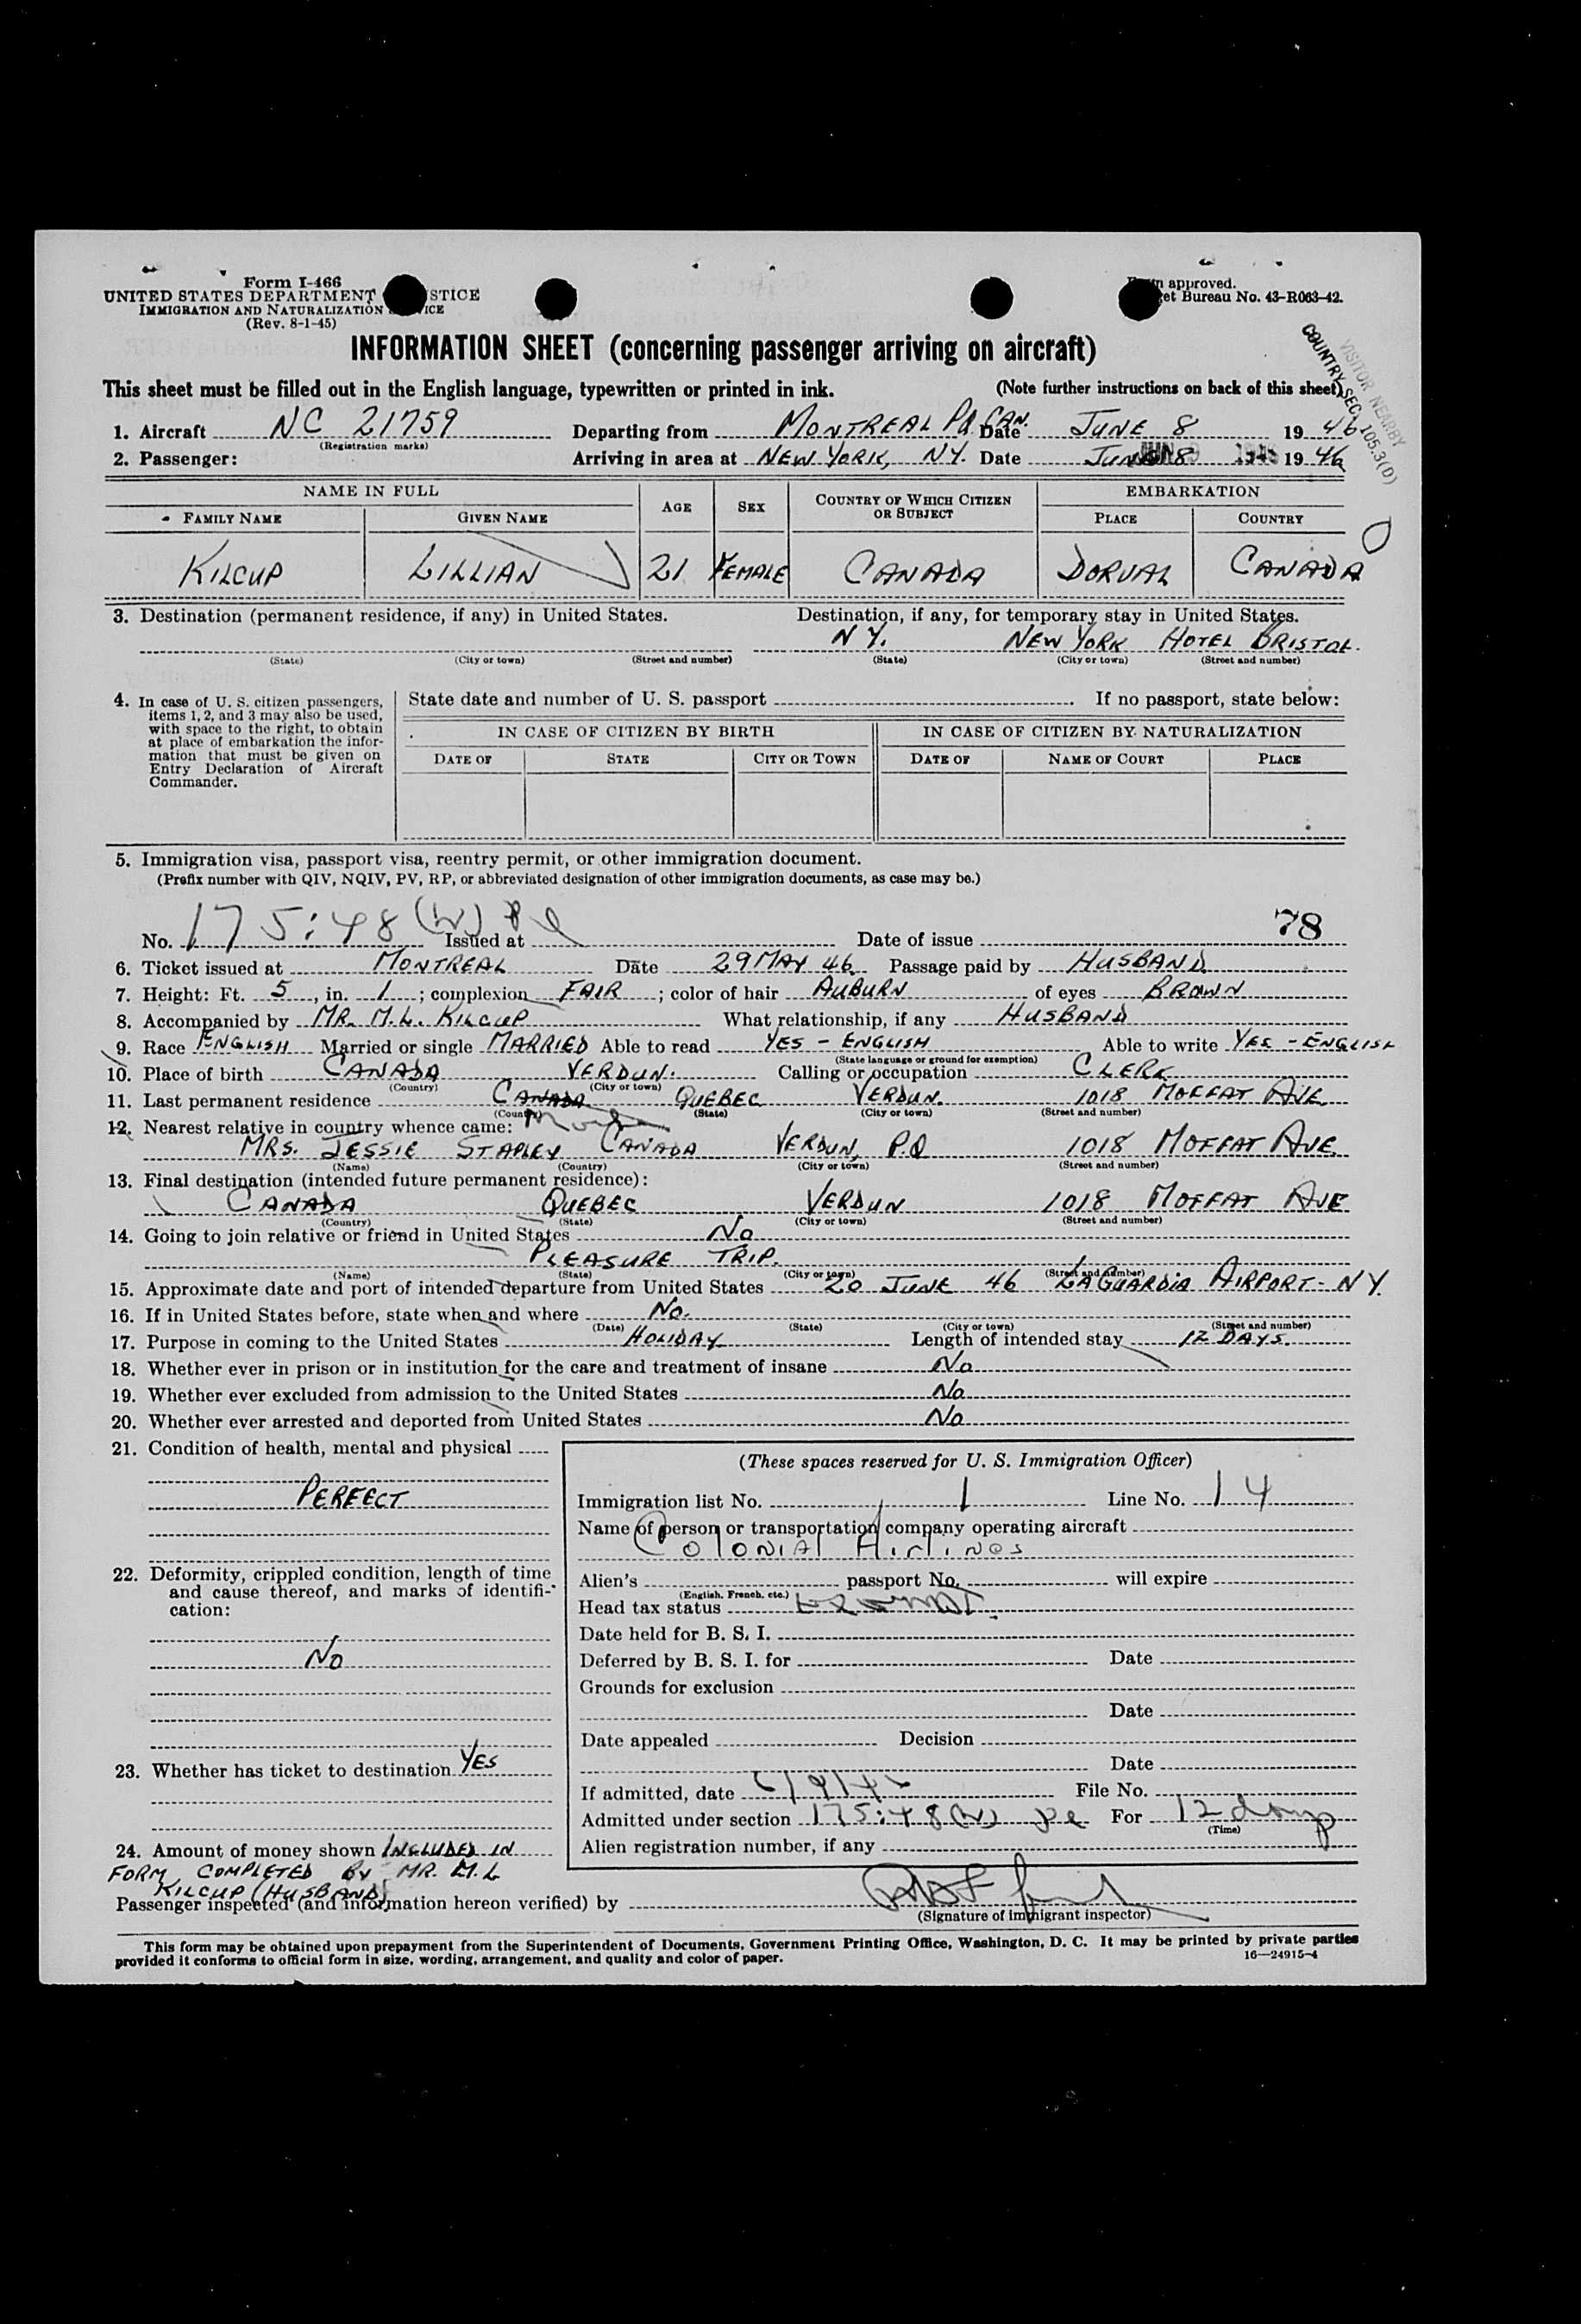 Form I-466
UNITED STATES DEPARTMENT STICE
IMMIGRATION AND NATURALIZATION VICE
(Rev. 8-1-45)
approved.
et Bureau No. 43-R063-42.
INFORMATION SHEET (concerning passenger arriving on aircraft)
VISITOR NEARBY
COUNTRY SEC. 105.3(D)
This sheet must be filled out in the English language, typewritten or printed in ink. (Note further instructions on back of this sheet)
1. Aircraft NC 21759 Departing from MONTREAL PQ. CAN. Date JUNE 8 1946
(Registration marks)
2. Passenger: Arriving in area at NEW YORK, NY. Date JUNE 8 1946
NAME IN FULL AGE SEX COUNTRY OF WHICH CITIZEN OR SUBJECT EMBARKATION
FAMILY NAME GIVEN NAME PLACE COUNTRY
KILCUP LILLIAN 21 FEMALE CANADA DORVAL CANADA
3. Destination (permanent residence, if any) in United States. Destination, if any, for temporary stay in United States.
NY. NEW YORK HOTEL BRISTOL.
(State) (City or town) (Street and number) (State) (City or town) (Street and number)
4. In case of U. S. citizen passengers, items 1, 2, and 3 may also be used, with space to the right, to obtain at place of embarkation the information that must be given on Entry Declaration of Aircraft Commander.
State date and number of U. S. passport If no passport, state below:
IN CASE OF CITIZEN BY BIRTH IN CASE OF CITIZEN BY NATURALIZATION
DATE OF STATE CITY OR TOWN DATE OF NAME OF COURT PLACE
5. Immigration visa, passport visa, reentry permit, or other immigration document.
(Prefix number with QIV, NQIV, PV, RP, or abbreviated designation of other immigration documents, as case may be.)
78
No. 175:48 (W) Issued at Date of issue
6. Ticket issued at MONTREAL Date 29 MAY 46 Passage paid by HUSBAND
7. Height: Ft. 5, in. 1; complexion FAIR; color of hair AUBURN of eyes BROWN
8. Accompanied by MR. M.L. KILCUP What relationship, if any HUSBAND
9. Race ENGLISH Married or single MARRIED Able to read YES - ENGLISH Able to write YES - ENGLISH
(State language or ground for exemption)
10. Place of birth CANADA VERDUN. Calling or occupation CLERK
(Country) (City or town)
11. Last permanent residence CANADA QUEBEC VERDUN. 1018 MOFFAT AVE
(Country) (State) (City or town) (Street and number)
12. Nearest relative in country whence came:
MRS. JESSIE STAPLEY CANADA VERDUN, P.Q 1018 MOFFAT AVE.
(Name) (Country) (City or town) (Street and number)
13. Final destination (intended future permanent residence):
CANADA QUEBEC VERDUN 1018 MOFFAT AVE
(Country) (State) (City or town) (Street and number)
14. Going to join relative or friend in United States NO
PLEASURE TRIP.
(Name) (State) (City or town) (Street and number)
15. Approximate date and port of intended departure from United States 20 JUNE 46 LAGUARDIA AIRPORT - NY.
16. If in United States before, state when and where NO.
(Date) (State) (City or town) (Street and number)
17. Purpose in coming to the United States HOLIDAY Length of intended stay 12 DAYS.
18. Whether ever in prison or in institution for the care and treatment of insane NO
19. Whether ever excluded from admission to the United States NO
20. Whether ever arrested and deported from United States NO
21. Condition of health, mental and physical
PERFECT
22. Deformity, crippled condition, length of time and cause thereof, and marks of identification:
NO
23. Whether has ticket to destination YES
24. Amount of money shown INCLUDED IN
FORM COMPLETED BY MR. M.L
KILCUP (HUSBAND)
(These spaces reserved for U. S. Immigration Officer)
Immigration list No. 1 Line No. 14
Name of person or transportation company operating aircraft
Colonial Airlines
Alien's passport No. will expire
(English, French, etc.)
Head tax status Exempt
Date held for B. S. I.
Deferred by B. S. I. for Date
Grounds for exclusion
Date
Date appealed Decision
Date
If admitted, date 6/9/46 File No.
Admitted under section 175:48(W) For 12 days
(Time)
Alien registration number, if any
Passenger inspected (and information hereon verified) by
(Signature of immigrant inspector)
This form may be obtained upon prepayment from the Superintendent of Documents, Government Printing Office, Washington, D. C. It may be printed by private parties
provided it conforms to official form in size, wording, arrangement, and quality and color of paper. 16—24915-4